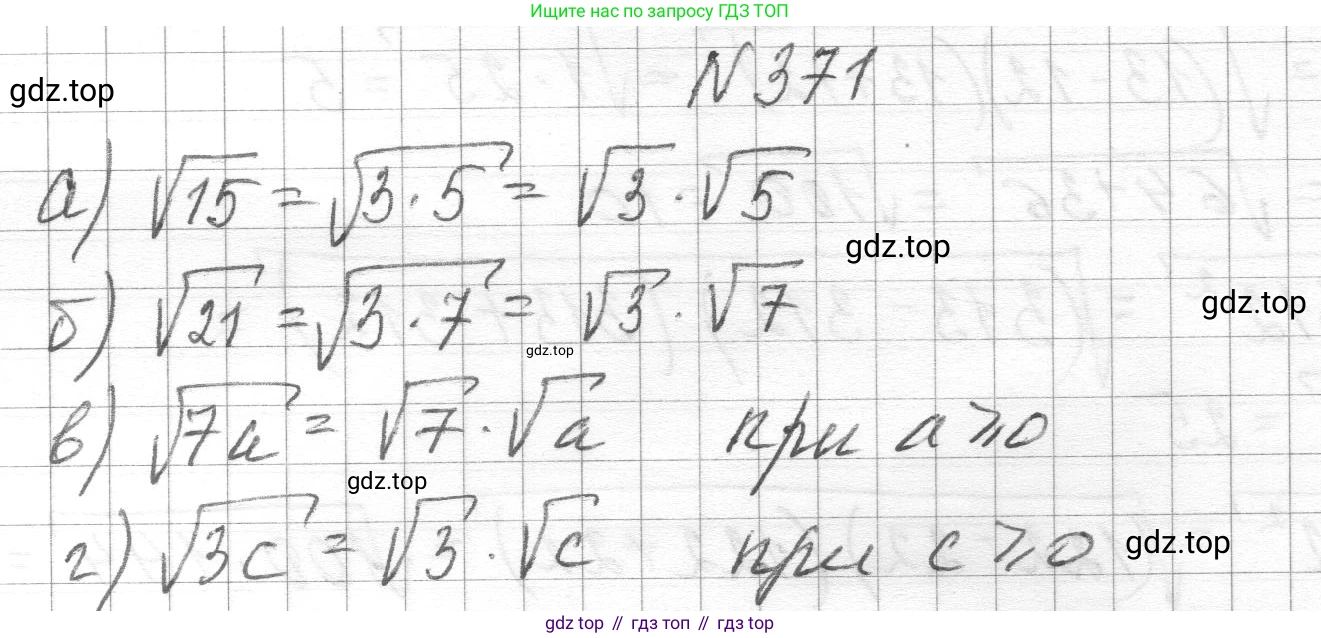 Ищите нас по запросу ГДЗ ТОП
N 371
gdz.top
а) √15 = √3·5 = √3 · √5
gdz.top
б) √21 = √3·7 = √3 · √7
gdz.top
gdz.top
в) √7a = √7 · √a при a ⩾ 0
gdz.top
г) √3c = √3 · √c при c ⩾ 0
gdz.top
gdz top // гдз топ // гдз top